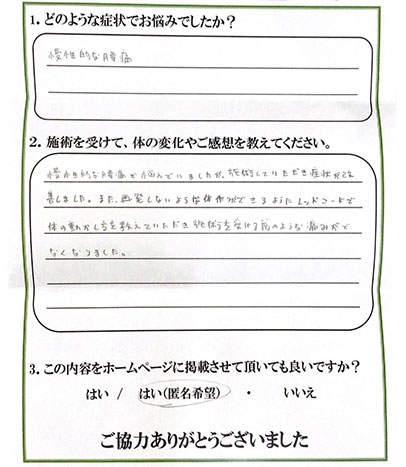 1. どのような症状でお悩みでしたか？
慢性的な腰痛
2. 施術を受けて、体の変化やご感想を教えてください。
慢性的な腰痛で悩んでいましたが、施術していただき症状が改
善しました。また、再発しないような体作りができるようにレッドコードで
体の動かし方を教えていただき施術を受ける前のような痛みがで
なくなりました。
3. この内容をホームページに掲載させて頂いても良いですか？
はい / はい(匿名希望) ・ いいえ
ご協力ありがとうございました